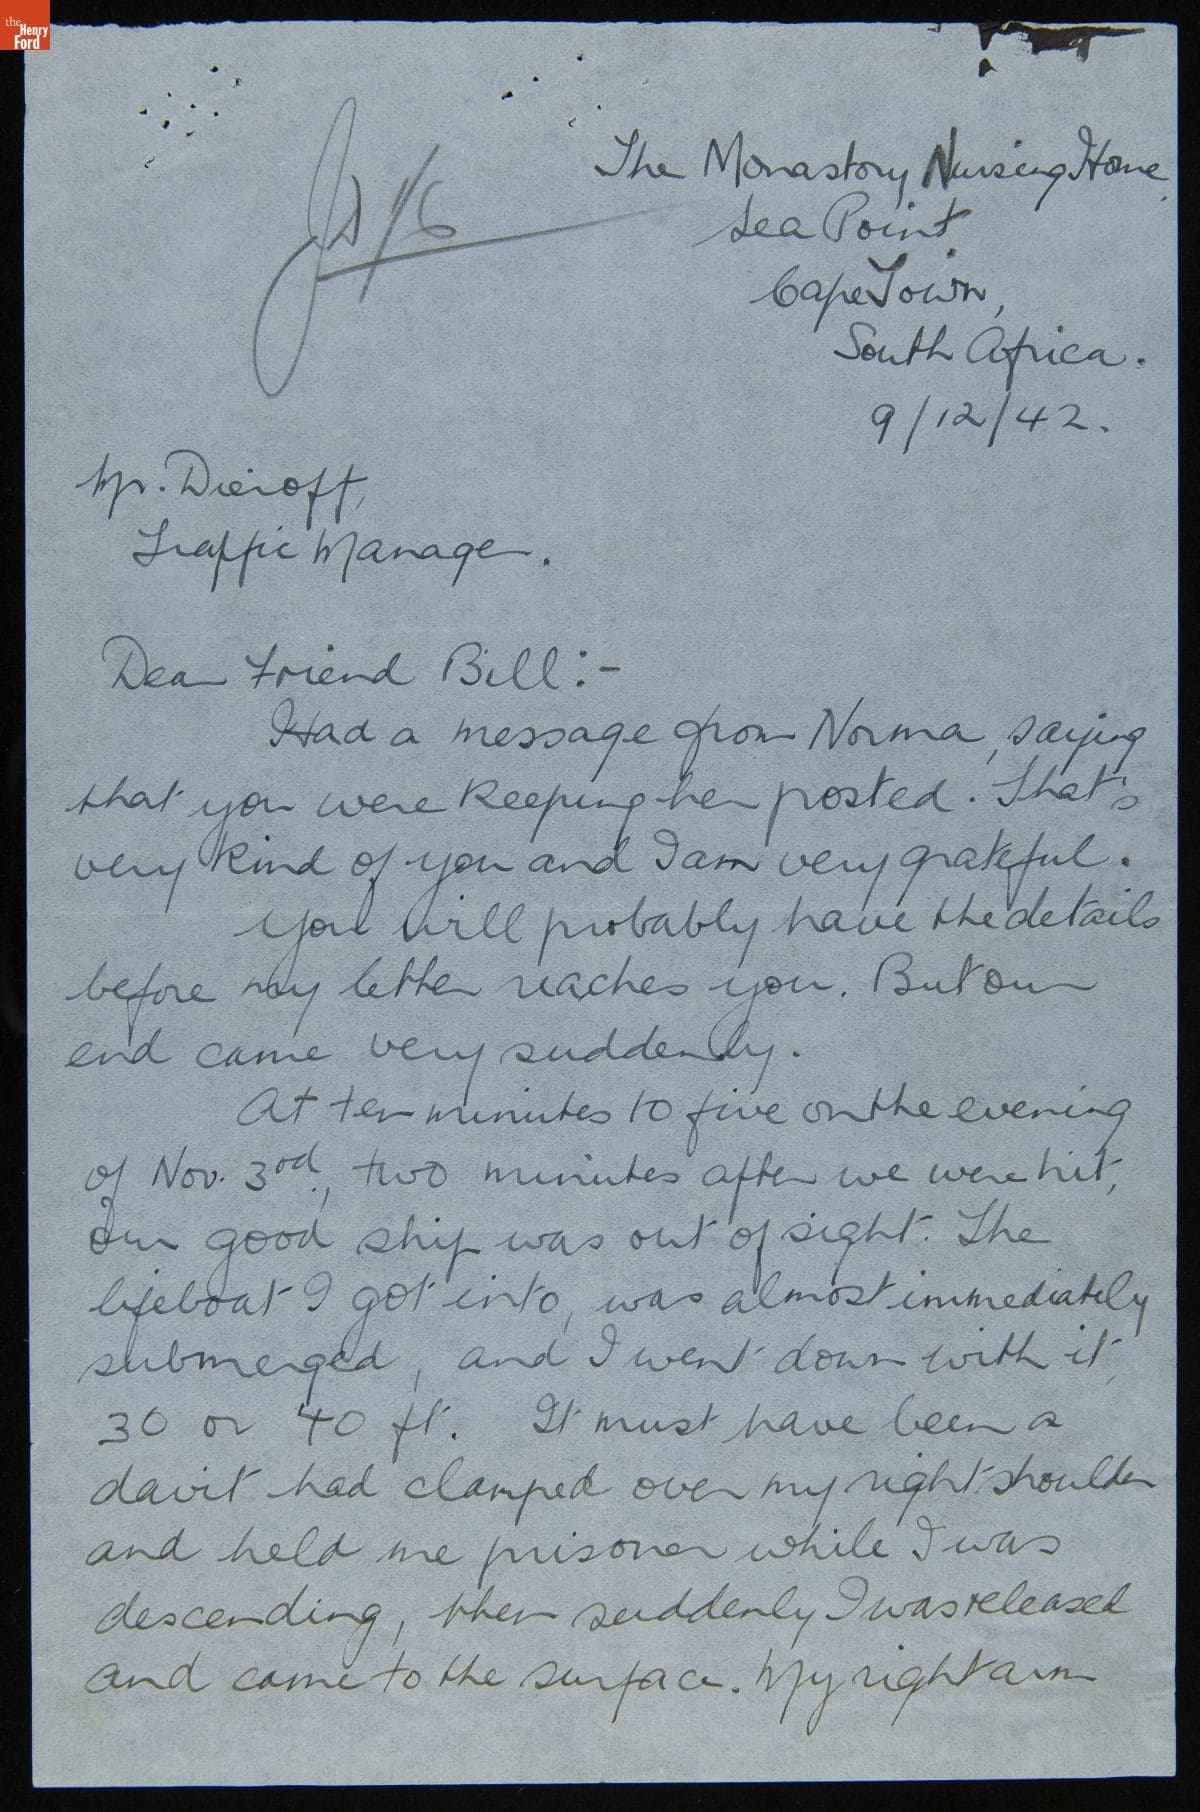 the
Henry
Ford
The Monastory Nursing Home,
Sea Point,
Cape Town,
South Africa.
9/12/42.
Mr. Dieroff,
Traffic Manager.
Dear Friend Bill:-
Had a message from Norma, saying
that you were keeping her posted. That's
very kind of you and I am very grateful.
You will probably have the details
before my letter reaches you. But our
end came very suddenly.
At ten minutes to five on the evening
of Nov. 3rd, two minutes after we were hit,
our good ship was out of sight. The
lifeboat I got into, was almost immediately
submerged, and I went down with it,
30 or 40 ft. It must have been a
davit had clamped over my right shoulder
and held me prisoner while I was
descending, then suddenly I was released
and came to the surface. My right arm